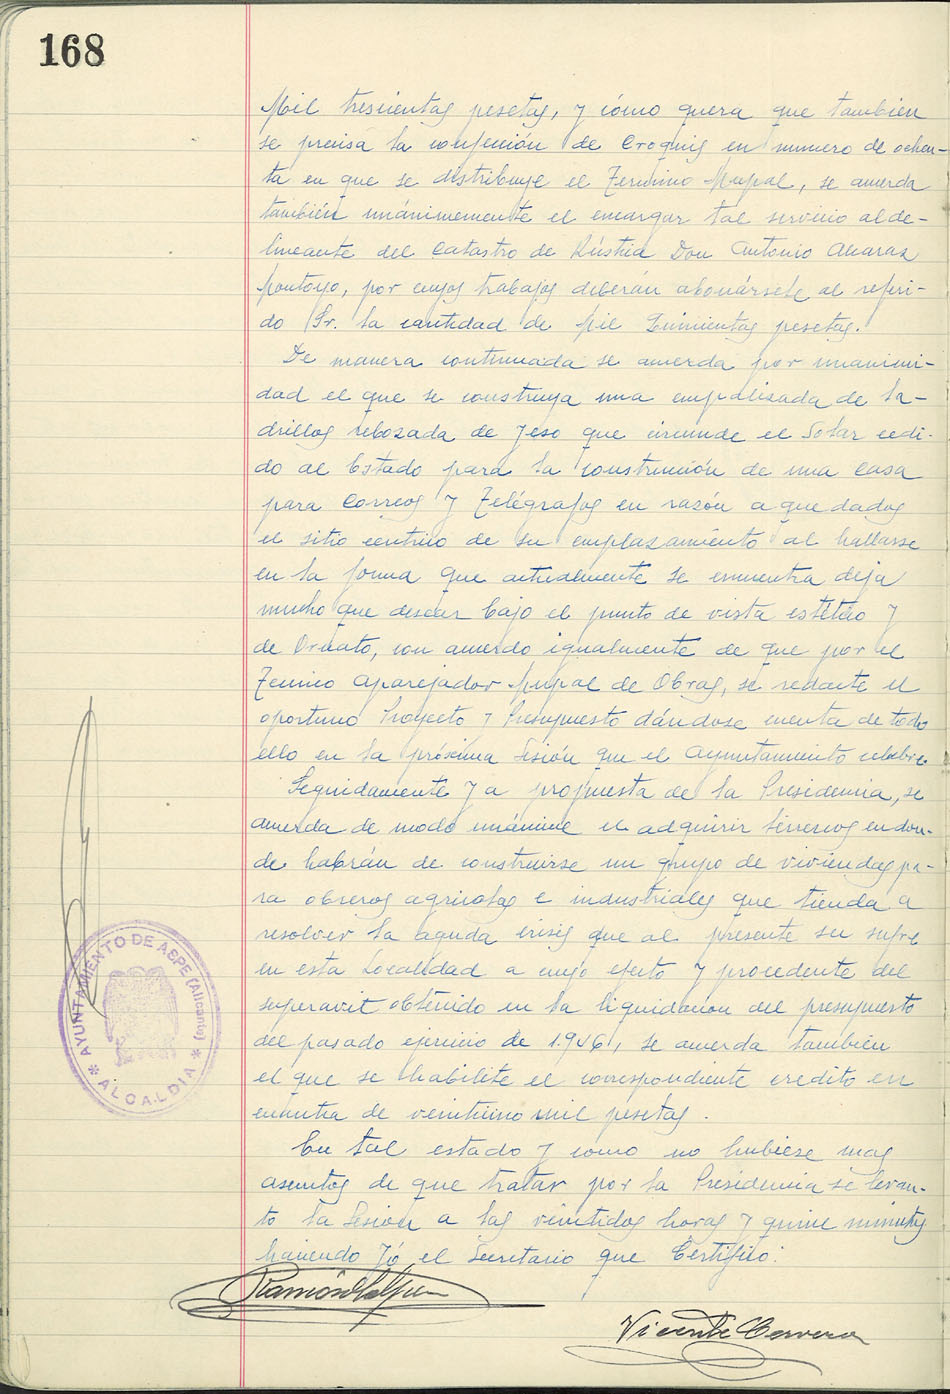 168
Mil trescientas pesetas, y cómo quera que tambien
se precisa la confección de Croquis en numero de ochen-
ta en que se distribuye el Termino Mupal, se acuerda
también unánimemente el encargar tal servicio al de-
lineante del Catastro de Rústica Don Antonio Alcaraz
Montoyo, por cuyos trabajos deberán abonársele al referi-
do Sr. la cantidad de Mil Quinientas pesetas.
De manera continuada se acuerda por unanimi-
dad el que se construya una empalizada de la-
drillos rebozada de Yeso que circunde el Solar cedi-
do al Estado para la construcción de una Casa
para Correos y Telégrafos en razón a que dados
el sitio centrico de su emplazamiento al hallarse
en la forma que actualmente se encuentra deja
mucho que desear bajo el punto de vista estético y
de Ornato, con acuerdo igualmente de que por el
Tecnico Aparejador Mupal de Obras, se redacte el
oportuno Proyecto y Presupuesto dándose cuenta de todo
ello en la próxima Sesión que el Ayuntamiento celebre
Seguidamente y a propuesta de la Presidencia, se
acuerda de modo unánime el adquirir terrenos en don-
de habrán de construirse un grupo de viviendas pa-
ra obreros agricolas e industriales que tienda a
resolver la aguda crisis que al presente se sufre
en esta Localidad a cuyo efecto y procedente del
superavit obtenido en la liquidación del presupuesto
del pasado ejercicio de 1.946, se acuerda también
el que se habilite el correspondiente credito en
cuantia de veintiuno mil pesetas.
En tal estado y como no hubiese mas
asuntos de que tratar por la Presidencia se levan-
tó la Sesión a las veintidos horas y quince minutos
haciendo Yó el Secretario que Certifico:
Vicente Cervera
AYUNTAMIENTO DE ASPE (Alicante)
* ALCALDIA *